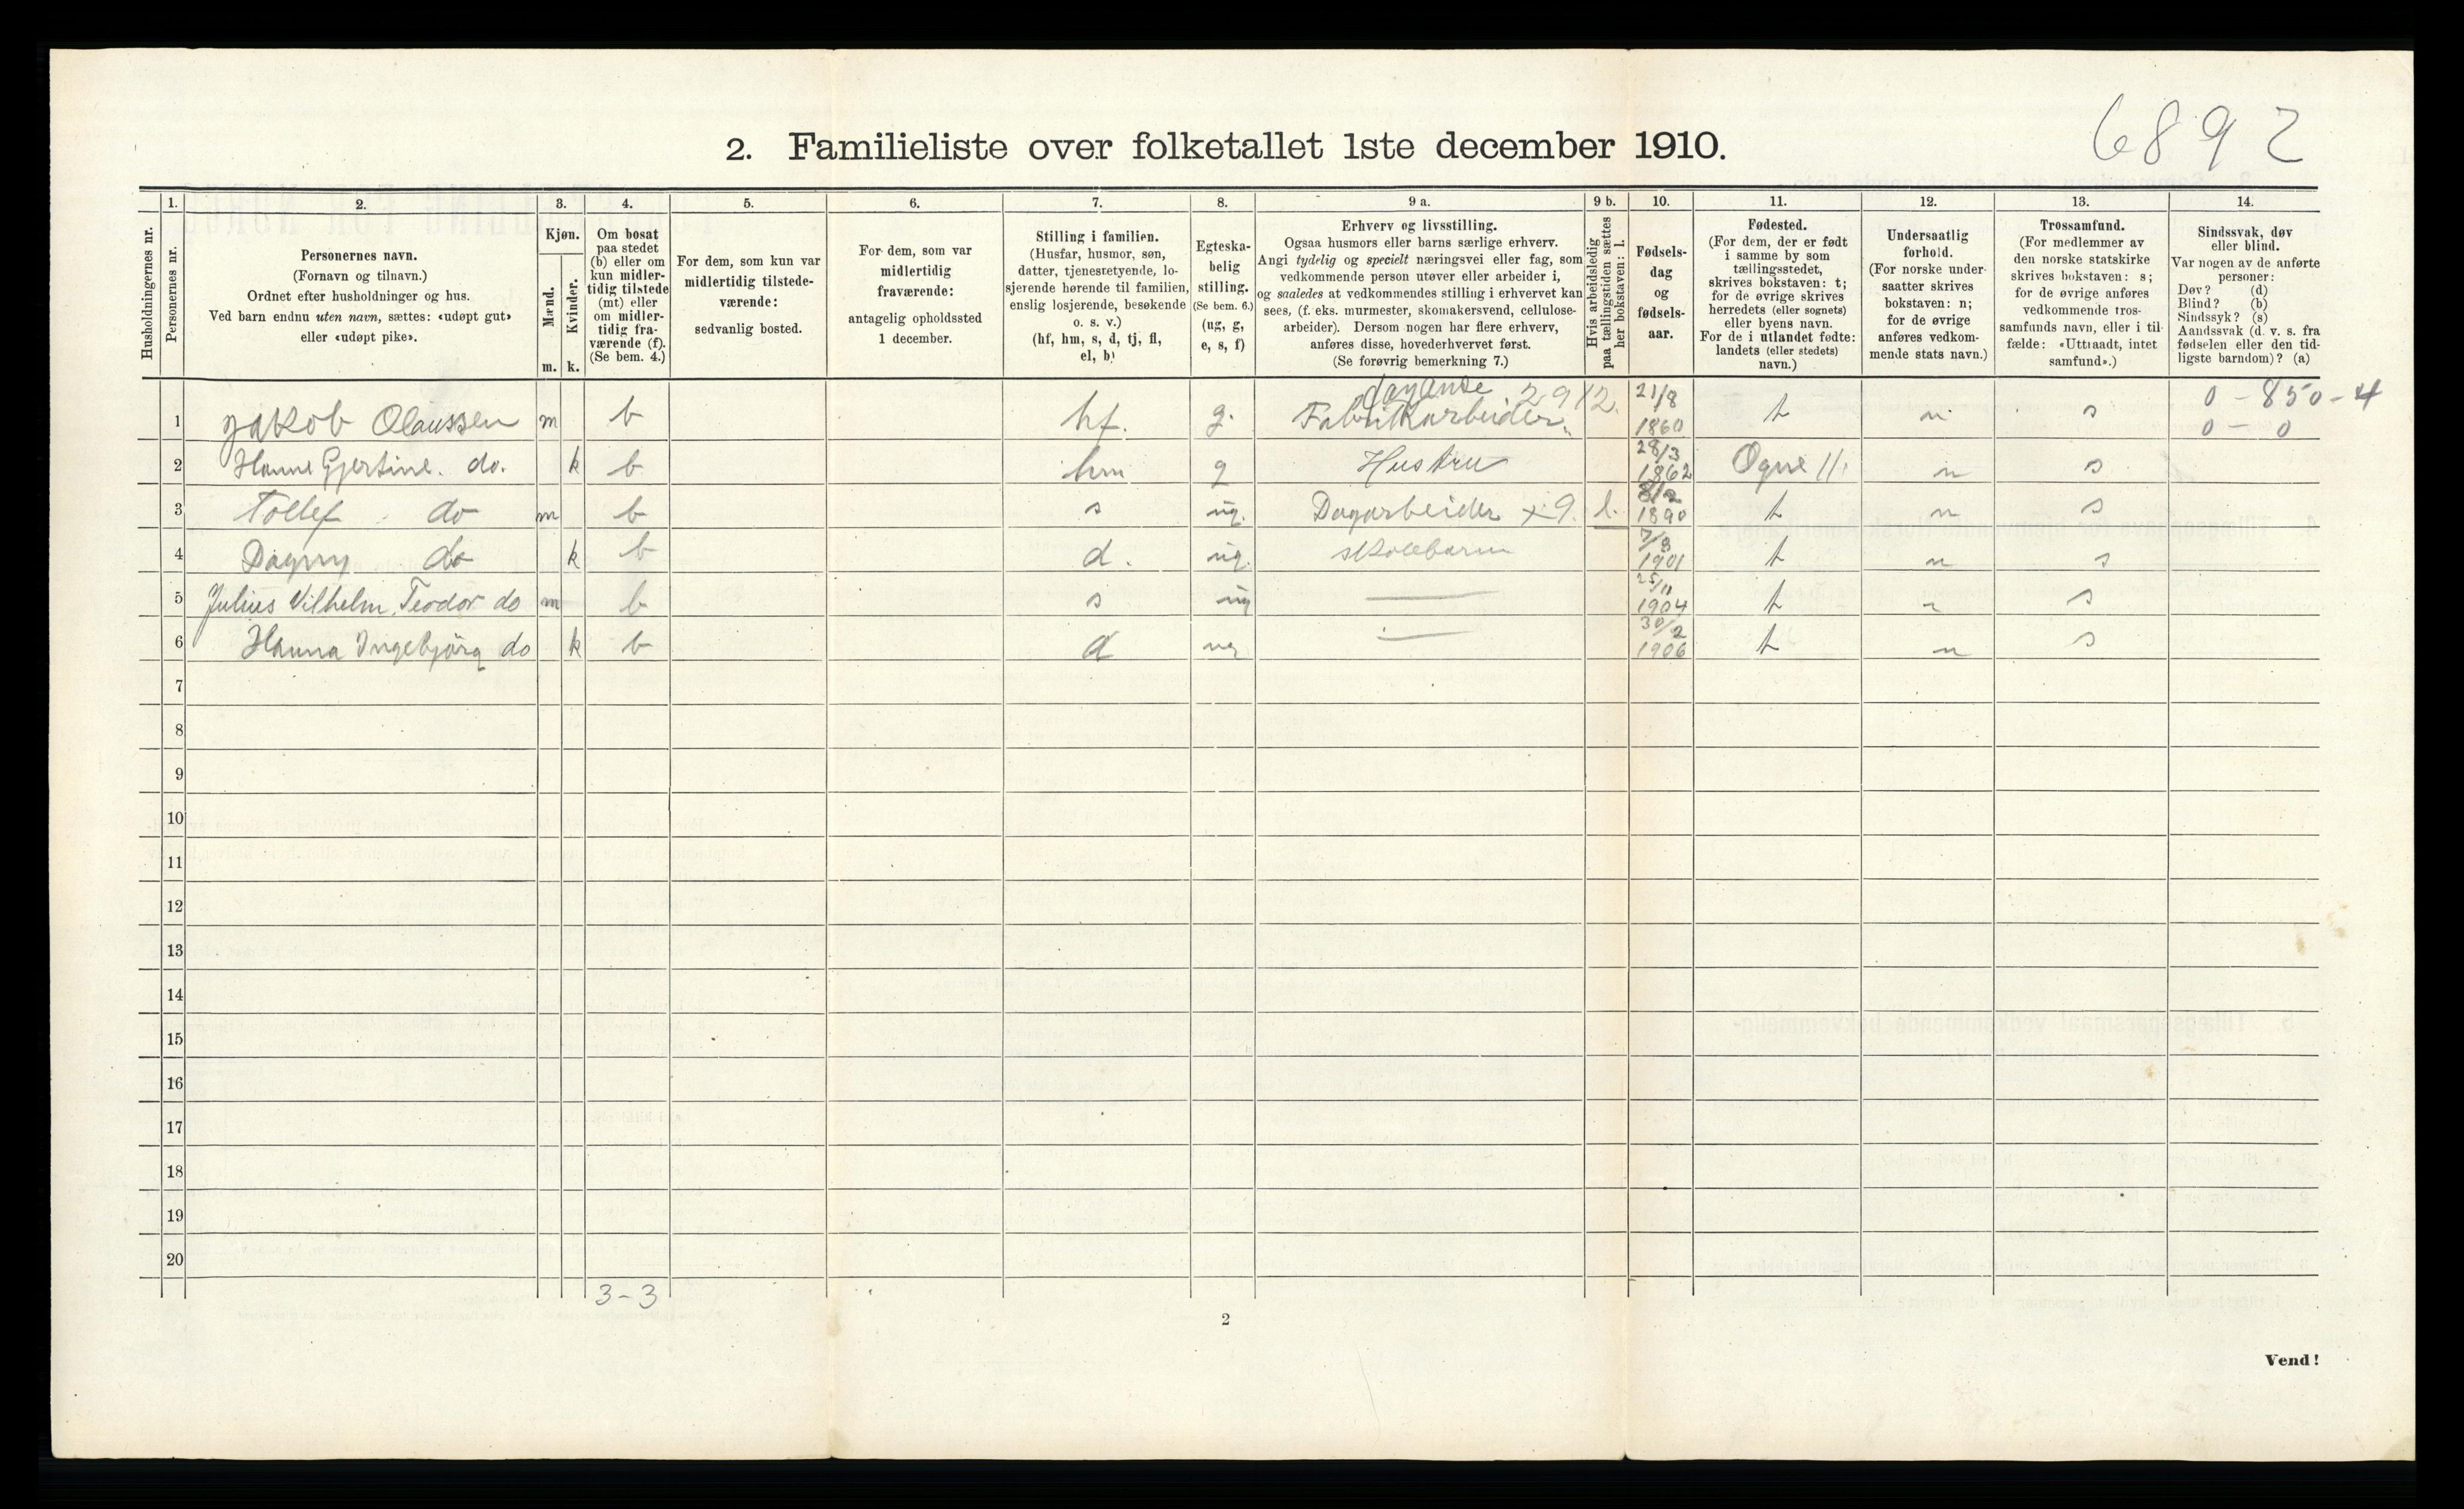 6892
2. Familieliste over folketallet 1ste december 1910.
Husholdningernes nr.
1.
Personernes nr.
2.
Personernes navn.
(Fornavn og tilnavn.)
Ordnet efter husholdninger og hus.
Ved barn endnu uten navn, sættes: «udøpt gut»
eller «udøpt pike».
3.
Kjøn.
Mænd.
Kvinder.
m. k.
4.
Om bosat
paa stedet
(b) eller om
kun midler-
tidig tilstede
(mt) eller
om midler-
tidig fra-
værende (f).
(Se bem. 4.)
5.
For dem, som kun var
midlertidig tilstede-
værende:
sedvanlig bosted.
6.
For dem, som var
midlertidig
fraværende:
antagelig opholdssted
1 december.
7.
Stilling i familien.
(Husfar, husmor, søn,
datter, tjenestetyende, lo-
sjerende hørende til familien,
enslig losjerende, besøkende
o. s. v.)
(hf, hm, s, d, tj, fl,
el, b)
8.
Egteska-
belig
stilling.
(Se bem. 6.)
(ug, g,
e, s, f)
9 a.
Erhverv og livsstilling.
Ogsaa husmors eller barns særlige erhverv.
Angi tydelig og specielt næringsvei eller fag, som
vedkommende person utøver eller arbeider i,
og saaledes at vedkommendes stilling i erhvervet kan
sees, (f. eks. murmester, skomakersvend, cellulose-
arbeider). Dersom nogen har flere erhverv,
anføres disse, hovederhvervet først.
(Se forøvrig bemerkning 7.)
9 b.
Hvis arbeidsledig
paa tællingstiden sættes
her bokstaven: l.
10.
Fødsels-
dag
og
fødsels-
aar.
11.
Fødested.
(For dem, der er født
i samme by som
tællingsstedet,
skrives bokstaven: t;
for de øvrige skrives
herredets (eller sognets)
eller byens navn.
For de i utlandet fødte:
landets (eller stedets)
navn.)
12.
Undersaatlig
forhold.
(For norske under-
saatter skrives
bokstaven: n;
for de øvrige
anføres vedkom-
mende stats navn.)
13.
Trossamfund.
(For medlemmer av
den norske statskirke
skrives bokstaven: s;
for de øvrige anføres
vedkommende tros-
samfunds navn, eller i til-
fælde: «Uttraadt, intet
samfund».)
14.
Sindssvak, døv
eller blind.
Var nogen av de anførte
personer:
Døv? (d)
Blind? (b)
Sindssyk? (s)
Aandssvak (d. v. s. fra
fødselen eller den tid-
ligste barndom)? (a)
2912. 21/8 0 - 850 - 4
1 Jakob Olaussen m b hf. g. Fabrikkarbeider 1860 t n s 0 - 0
28/3
2 Hanne Gjertine. do. k b hm g Hustru 1862 Ogne n s
3 Tollef do m b s ug. Dagarbeider x9. l. 1890 t n s
4 Dagny do k b d. ug. skolebarn 1901 t n s
25/11
5 Julius Vilhelm Teodor do m b s ug — 1904 t n s
30/2
6 Hanna Ingebjörg do k b d ug — 1906 t n s
7
8
9
10
11
12
13
14
15
16
17
18
19
20
3-3
2
Vend!